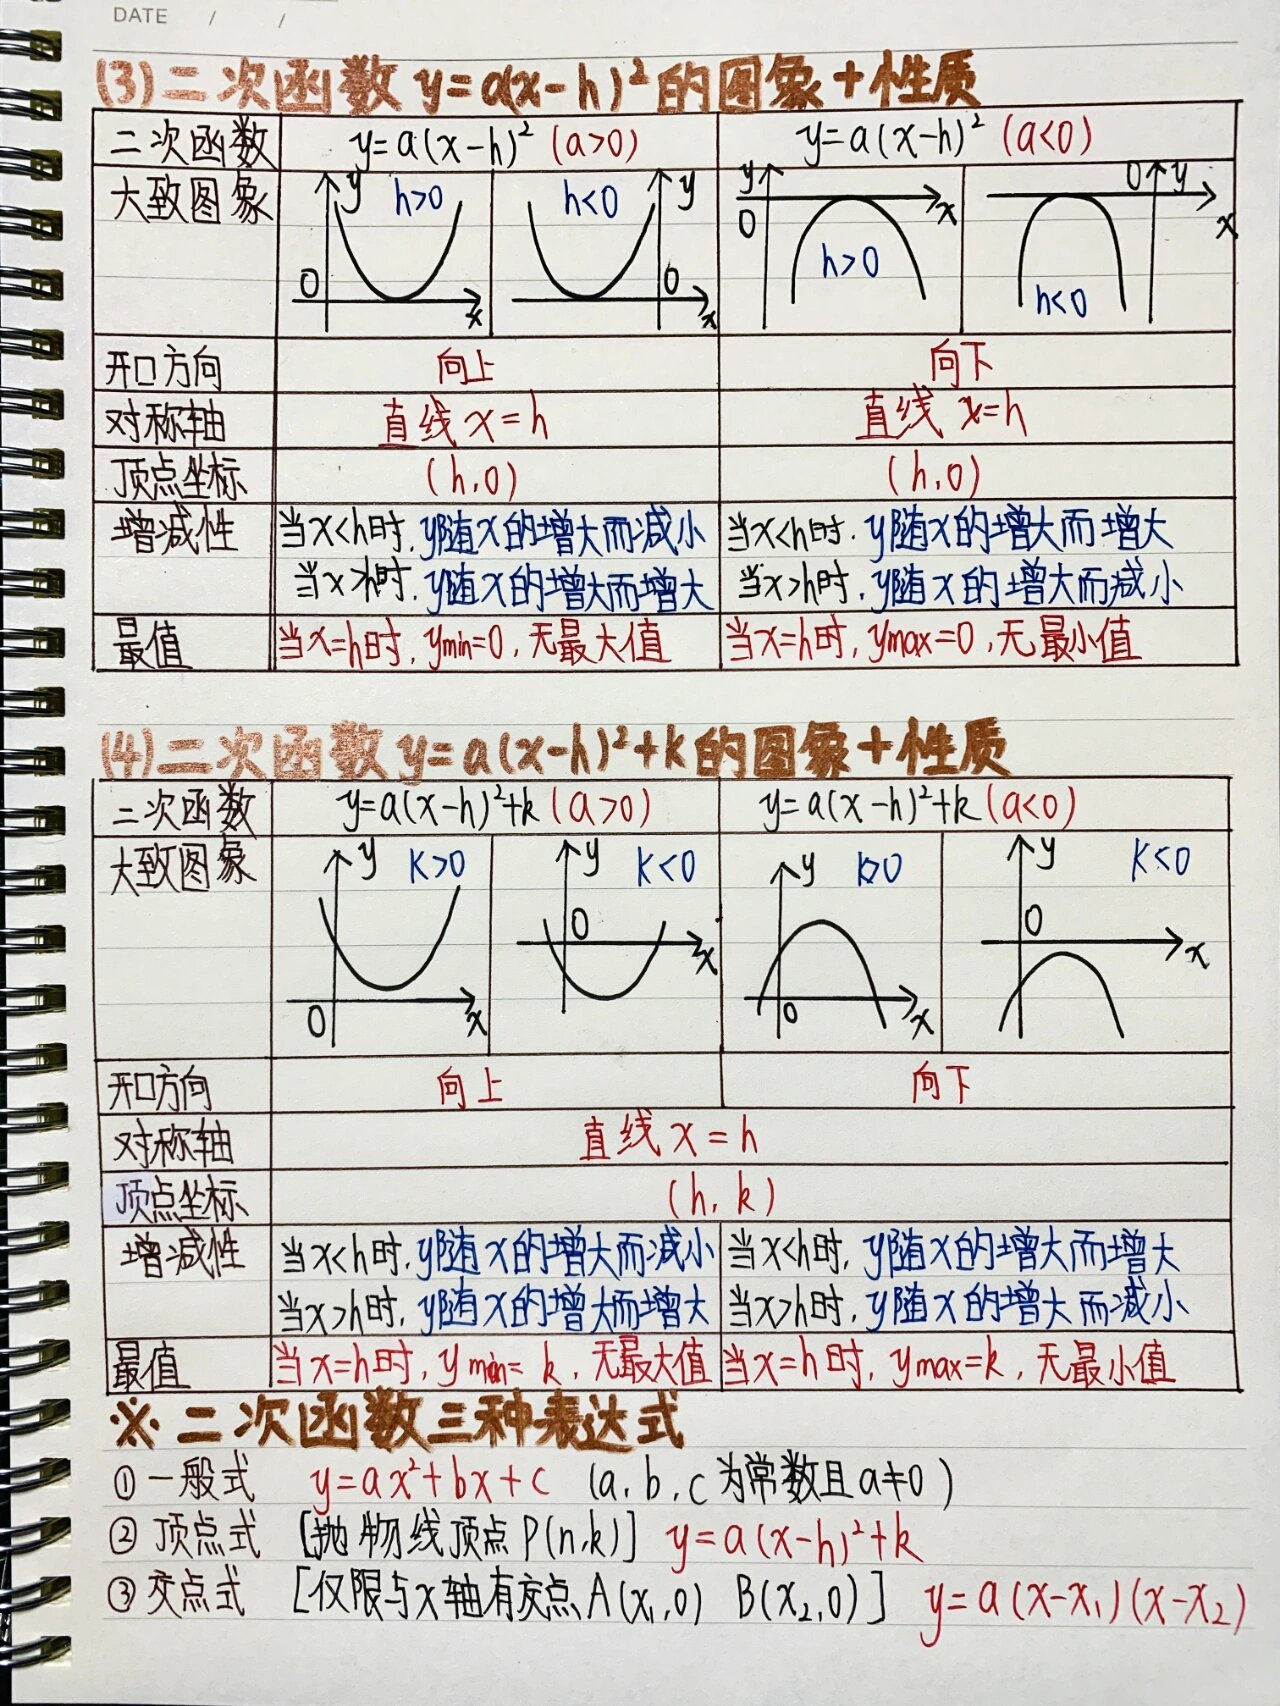 DATE / /
(3)二次函数 y=a(x-h)²的图象+性质
二次函数 y=a(x-h)² (a>0) y=a(x-h)² (a<0)
大致图象 y h>0 0 x h<0 y 0 x y 0 x h>0 0 y x h<0
开口方向 向上 向下
对称轴 直线 x=h 直线 x=h
顶点坐标 (h,0) (h,0)
增减性 当x<h时,y随x的增大而减小 当x<h时,y随x的增大而增大
当x>h时,y随x的增大而增大 当x>h时,y随x的增大而减小
最值 当x=h时,ymin=0,无最大值 当x=h时,ymax=0,无最小值
(4)二次函数 y=a(x-h)²+k的图象+性质
二次函数 y=a(x-h)²+k (a>0) y=a(x-h)²+k (a<0)
大致图象 y k>0 0 x y k<0 0 x y k>0 0 x y k<0 0 x
开口方向 向上 向下
对称轴 直线 x=h
顶点坐标 (h,k)
增减性 当x<h时,y随x的增大而减小 当x<h时,y随x的增大而增大
当x>h时,y随x的增大而增大 当x>h时,y随x的增大而减小
最值 当x=h时,ymin=k,无最大值 当x=h时,ymax=k,无最小值
※二次函数三种表达式
①一般式 y=ax²+bx+c (a,b,c为常数且a≠0)
②顶点式 [抛物线顶点P(h,k)] y=a(x-h)²+k
③交点式 [仅限与x轴有交点A(x₁,0) B(x₂,0)] y=a(x-x₁)(x-x₂)